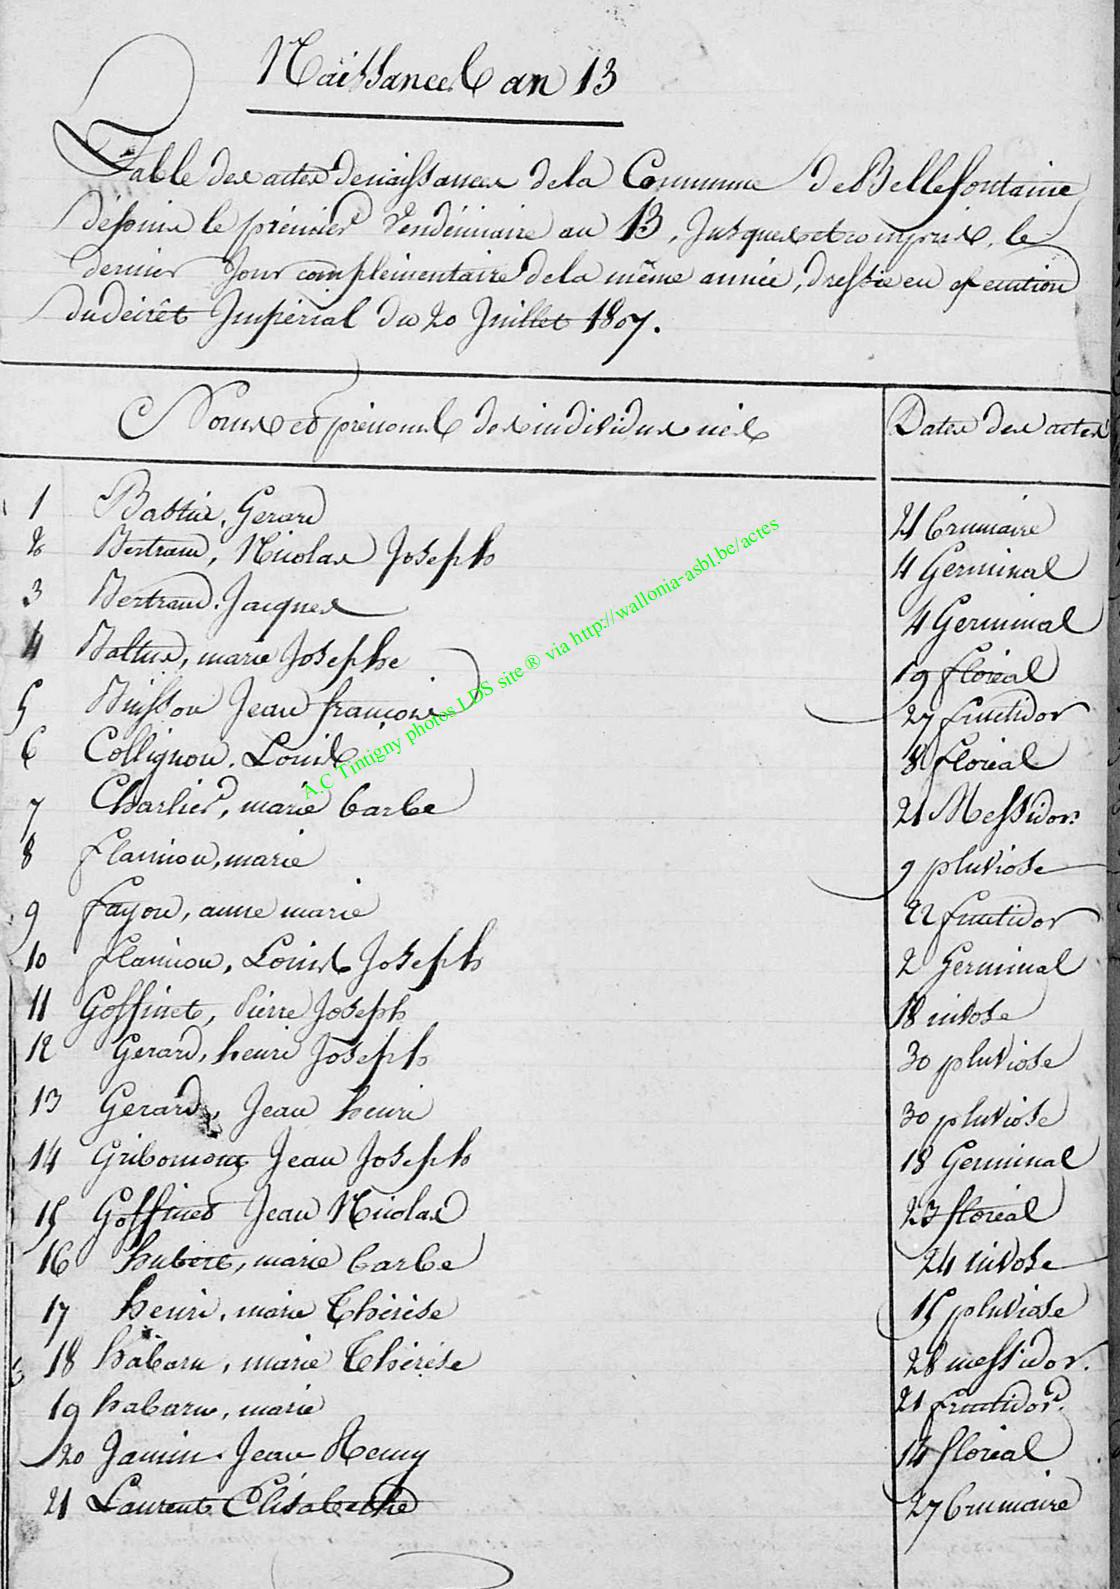 Naissances an 13
Table des actes de naissances de la Commune de Bellefontaine
dépuis le prémier Vendémiaire an 13, Jusques et compris le
dernier Jour complémentaire de la même année, dressée en exécution
du décrêt Impérial du 20 Juillet 1807.
Noms et prénoms des individus nés
Dates des actes
1 Bastin, Gerard 21 brumaire
2 Bertrand, Nicolas Joseph 4 Germinal
3 Bertrand, Jacques 4 Germinal
4 marie Josephe 19 floréal
5 Buisson Jean françois 27 fructidor
6 Collignon, Louis 8 floréal
7 Charlier, marie barbe 21 Messidor
8 flamion, marie 9 pluviose
9 fayon, anne marie 22 fructidor
10 flamion, Louis Joseph 2 Germinal
11 Goffinet, Pierre Joseph 18 nivose
12 Gerard, henri Joseph 30 pluviose
13 Gerard, Jean henri 30 pluviose
14 Gribomont Jean Joseph 18 Germinal
15 Goffinet Jean Nicolas 23 floréal
16 hubert, marie barbe 24 nivose
17 henri, marie Thérèse 15 pluviose
18 habaru, marie Thérèse 28 messidor.
19 habaru, marie 21 fructidor.
20 Jamin Jean Remy 14 floréal
21 Laurent Elisabethe 27 brumaire
A.C Tintigny photos LDS site ® via http://wallonia-asbl.be/actes